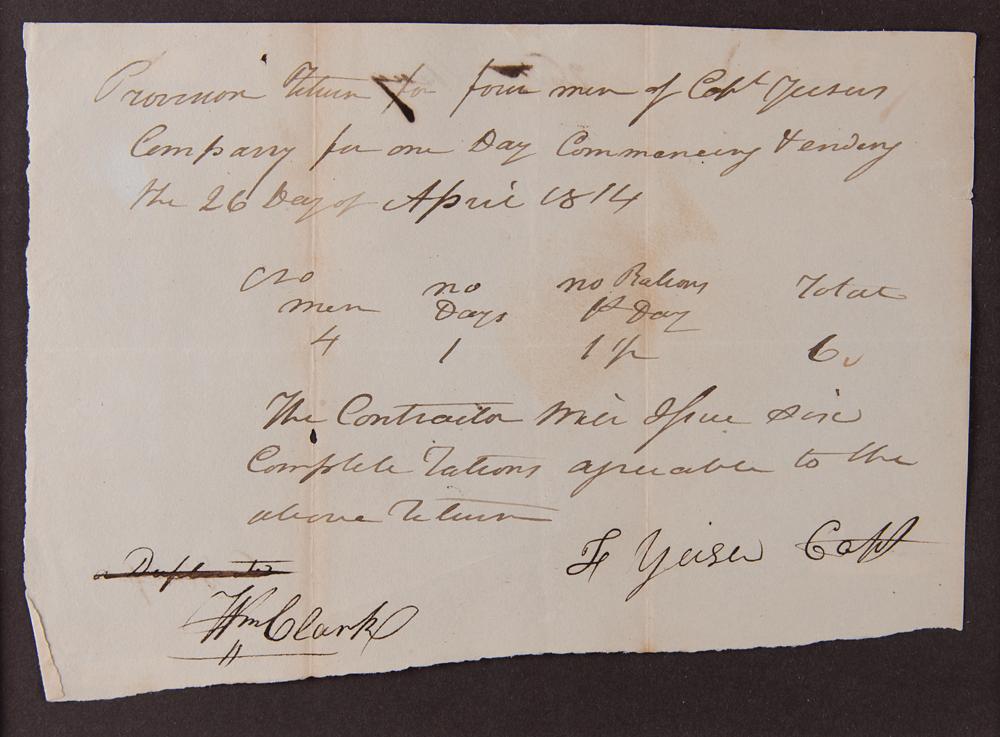 Provision Return for four men of Capt Yeisers
Company for one Day Commencing & ending
the 26 Day of April 1814
No men no Days no Rations pr Day Total
4 1 1½ 6
The Contractor Will Issue Six
Complete Rations agreeable to the
above Return
F Yeiser Capt
a Duplicate
Wm Clark